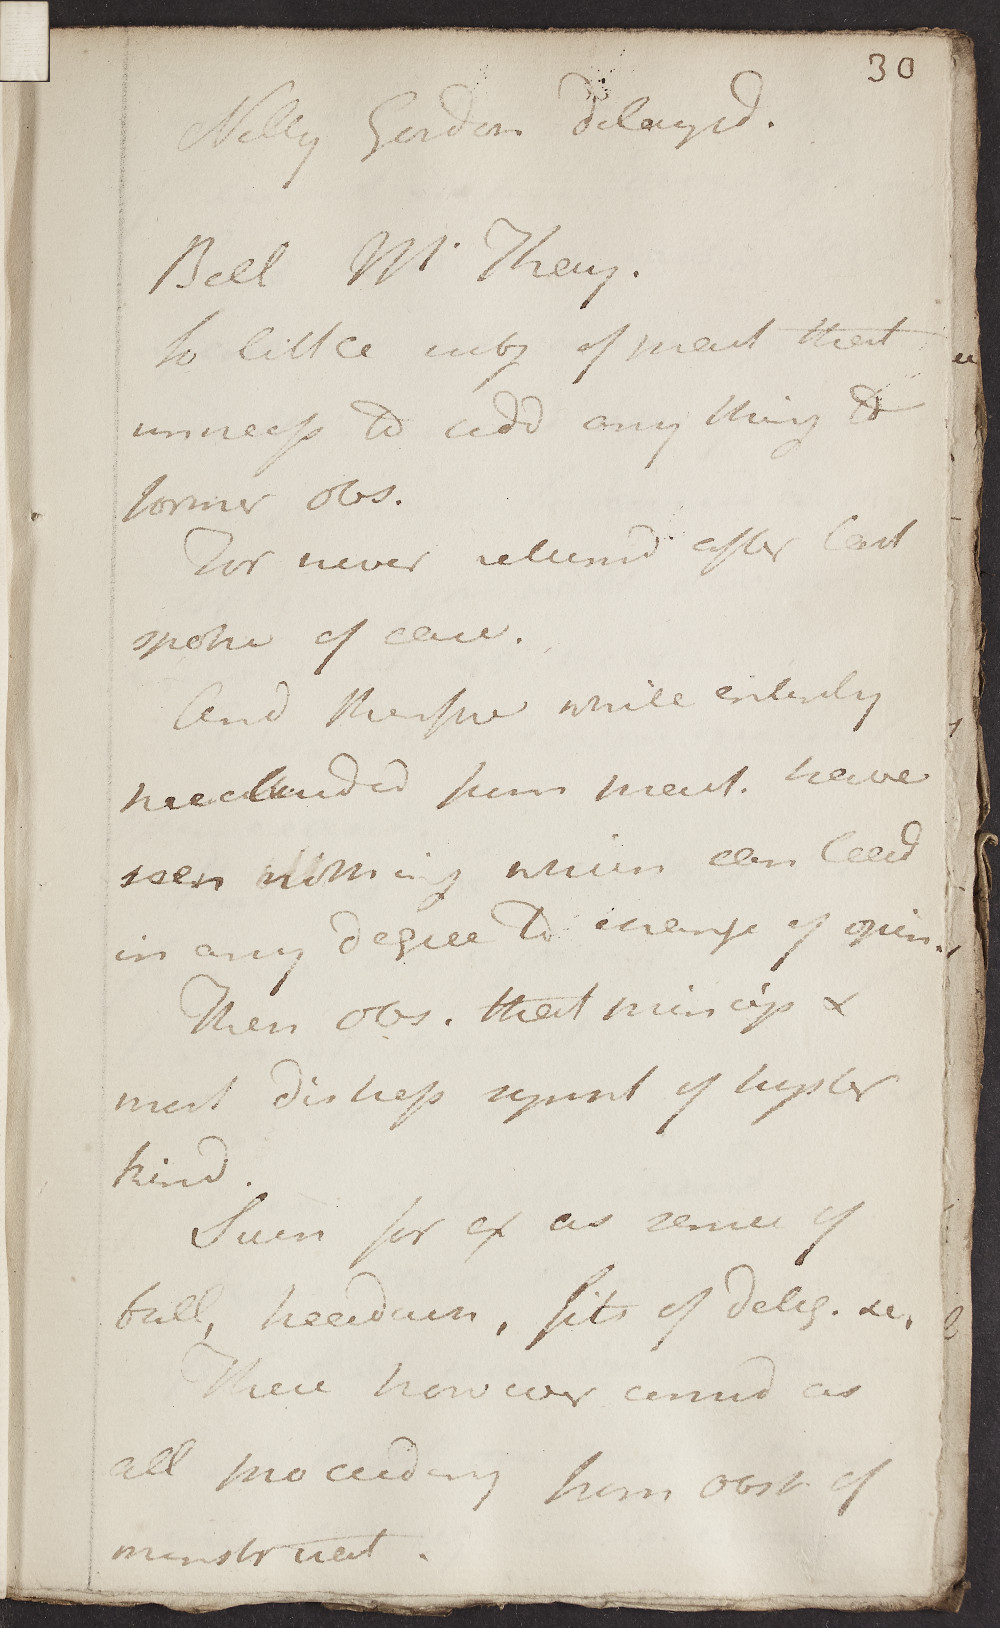 30
Nelly Gordon delayed.
Bell Mc
So little subj of pract that
unnecess to add any thing to
former obs.
For never returnd after last
spoke of case.
And therefore while entirely
precluded from pract. have
seen nothing which can lead
in any degree to change of opin.
Then obs. that princip &
most distress sympt of hyster
kind.
Such for ex as sense of
ball, headach, fits of delig. &c,
These however consid as
all proceeding from obst of
menstruat.